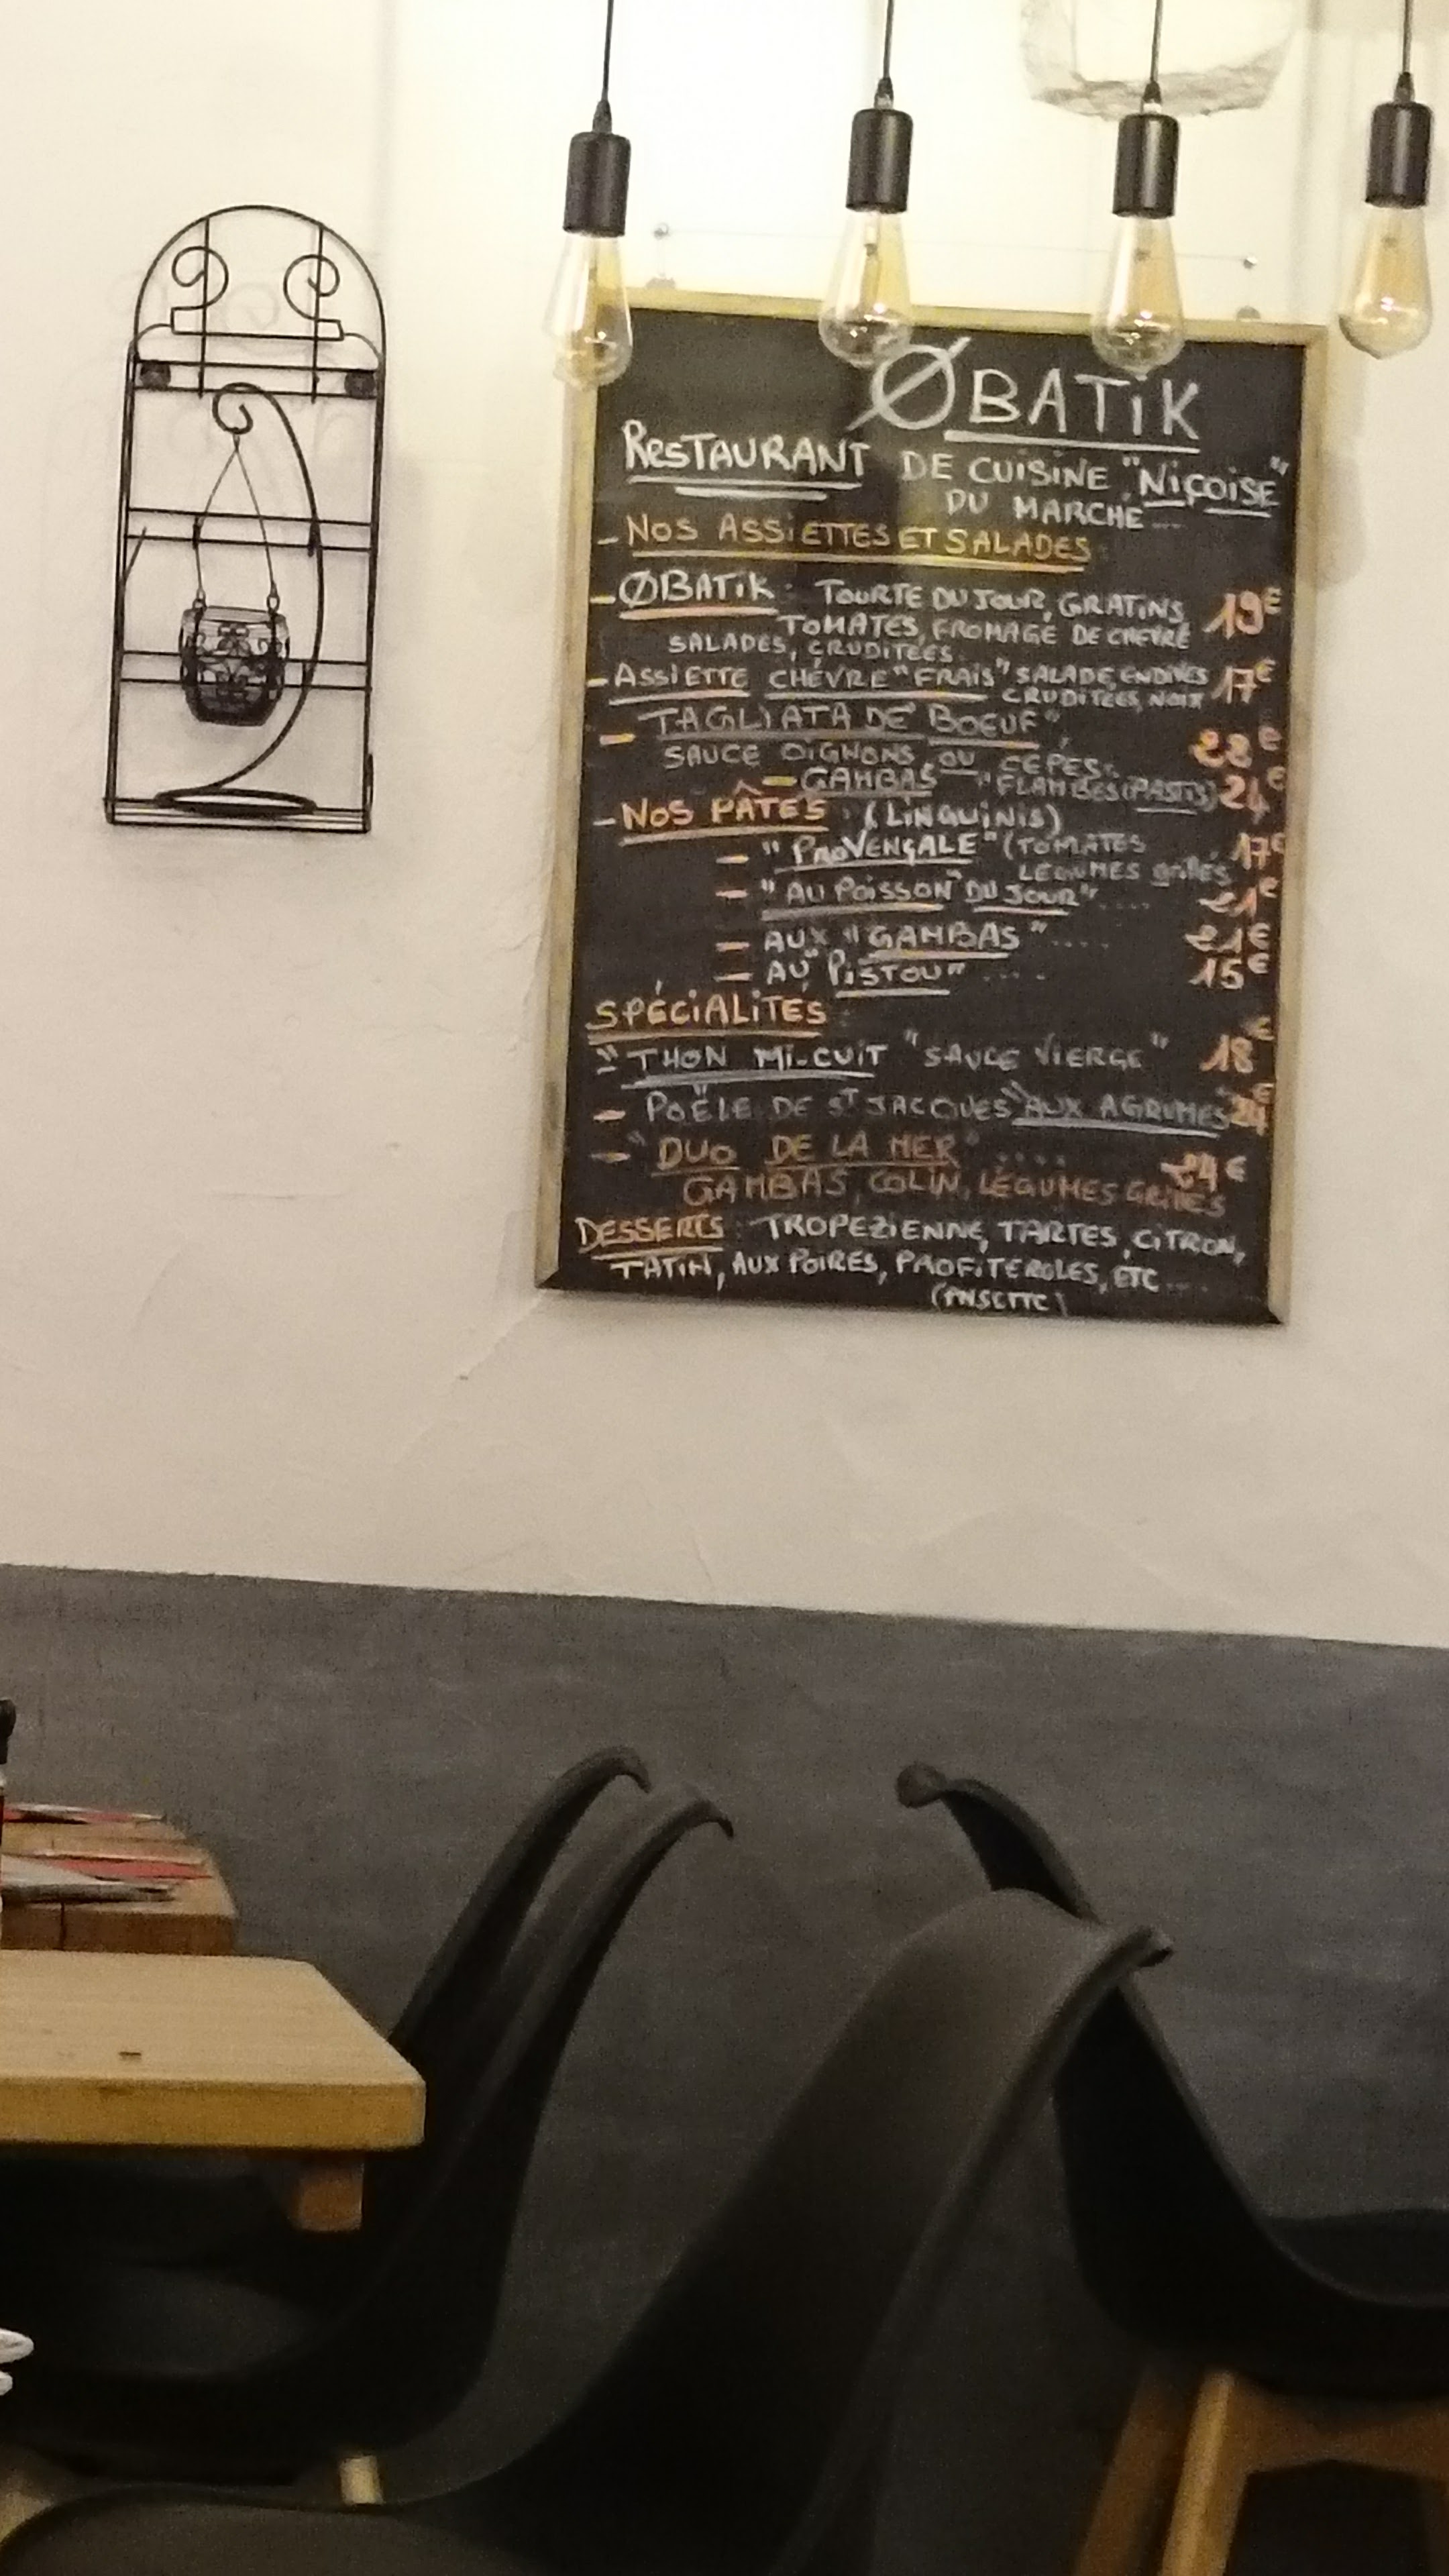 ØBATiK
RESTAURANT DE CUISINE "NiÇOiSE"
DU MARCHÉ...
- NOS ASSiETTES ET SALADES
- ØBATiK : TOURTE DU JOUR, GRATINS, 19€
TOMATES, FROMAGE DE CHEVRE
SALADES, CRUDITÉES.
- ASSIETTE CHÈVRE "FRAIS" SALADE, ENDIVES 17€
CRUDITÉES, NOIX
- TAGLIATA DE BOEUF"
SAUCE OIGNONS OU CÈPES.
- GAMBAS "FLAMBÉS (PASTIS) 24€
- NOS PÂTES : (LiNGUiNiS)
- "PROVENÇALE" (TOMATES 17€
LÉGUMES GRILLÉS
- "AU POISSON" DU JOUR" .... 21€
- AUX "GAMBAS" .... 21€
- AU "PISTOU" .... 15€
SPÉCIALITÉS
- "THON Mi-CUIT "SAUCE VIERGE" 18€
- POÊLE DE ST JACQUES "AUX AGRUMES" 24€
- "DUO DE LA MER" .... 24€
GAMBAS, COLIN, LÉGUMES GRILLÉS
DESSERTS : TROPEZIENNE, TARTES, CITRON,
TATIN, AUX POIRES, PROFITEROLES, ETC ....